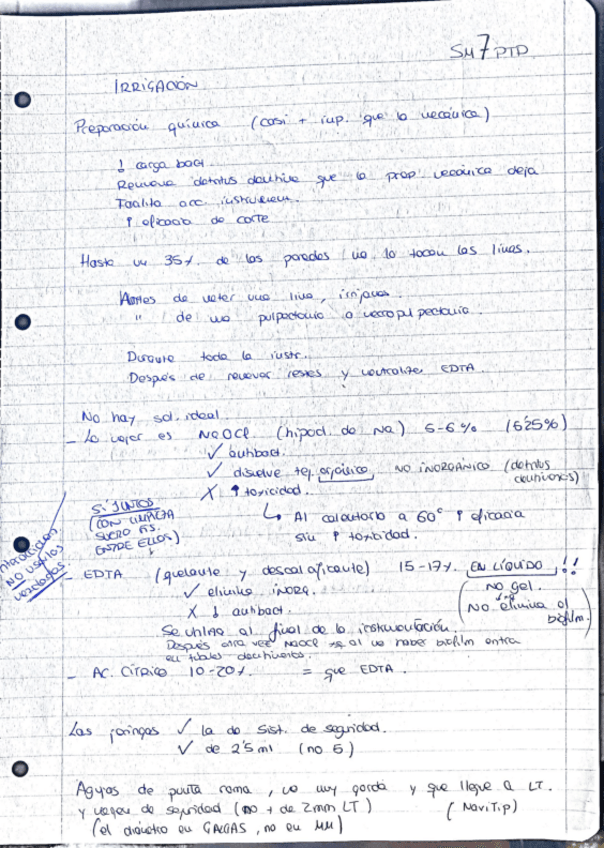 SM7 PTD
IRRIGACIÓN
Preparación química (casi + imp. que la mecánica)
↓ carga bact.
Remueve detritus dentina que la prep. mecánica deja
Facilita acc. instrument.
↑ eficacia de corte
Hasta un 35% de las paredes no lo tocan las limas.
Antes de meter una lima, irrigamos.
" de una pulpectomía o necropulpectomía.
Durante toda la instr.
Después de remover restes y neutralizar EDTA.
No hay sol. ideal.
- La mejor es NaOCl (hipocl. de Na) 5-6% (5'25%)
✓ antibact.
✓ disuelve tej. orgánico, NO INORGÁNICO (detritus dentinarios)
X ↑ toxicidad.
↳ Al calentarlo a 60° ↑ eficacia
sin ↑ toxicidad.
SI JUNTOS
(CON LIMPIEZA
SUERO FIS.
ENTRE ELLOS)
NO usarlos
mezclados.
- EDTA (quelante y descalcificante) 15-17%. EN LÍQUIDO!!
✓ elimina INORG.
X ↓ antibact.
NO gel.
(NO elimina el
biofilm.)
Se utiliza al final de la instrumentación.
Después otra vez NaOCl al no haber biofilm entra
en túbulos dentinarios.
- AC. CÍTRICO 10-20%. = que EDTA.
Las jeringas ✓ la de Sist. de seguridad.
✓ de 2'5 ml (no 5)
Agujas de punta roma, no muy gorda y que llegue a LT.
y margen de seguridad (no + de 2mm LT) (NaviTip)
(el diámetro en GALGAS, no en MM)